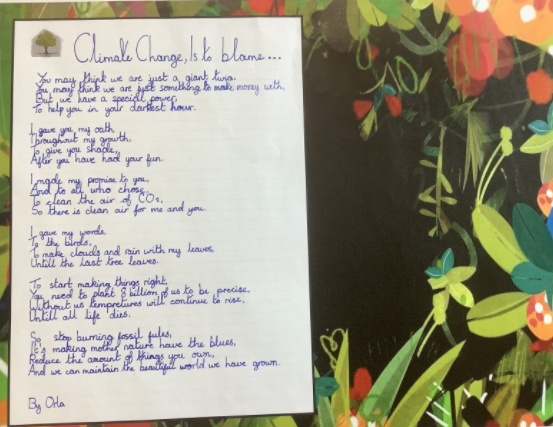 Climate Change, Is to blame...
You may think we are just a giant twig.
You may think we are just something to make money with,
But we have a special power,
To help you in your darkest hour.
I gave you my oath
Throughout my growth,
To give you shade,
After you have had your fun.
I made my promise to you,
And to all who chose,
To clean the air of CO2,
So there is clean air for me and you.
I gave my words
To the birds,
To make clouds and rain with my leaves
Untill the last tree leaves.
To start making things right,
You need to plant 8 billion of us to be precise,
Without us tempretures will continue to rise,
Untill all life dies.
So stop burning fossil fules,
It's making mother nature have the blues,
Reduce the amount of things you own,
And we can maintain the beautiful world we have grown.
By Orla